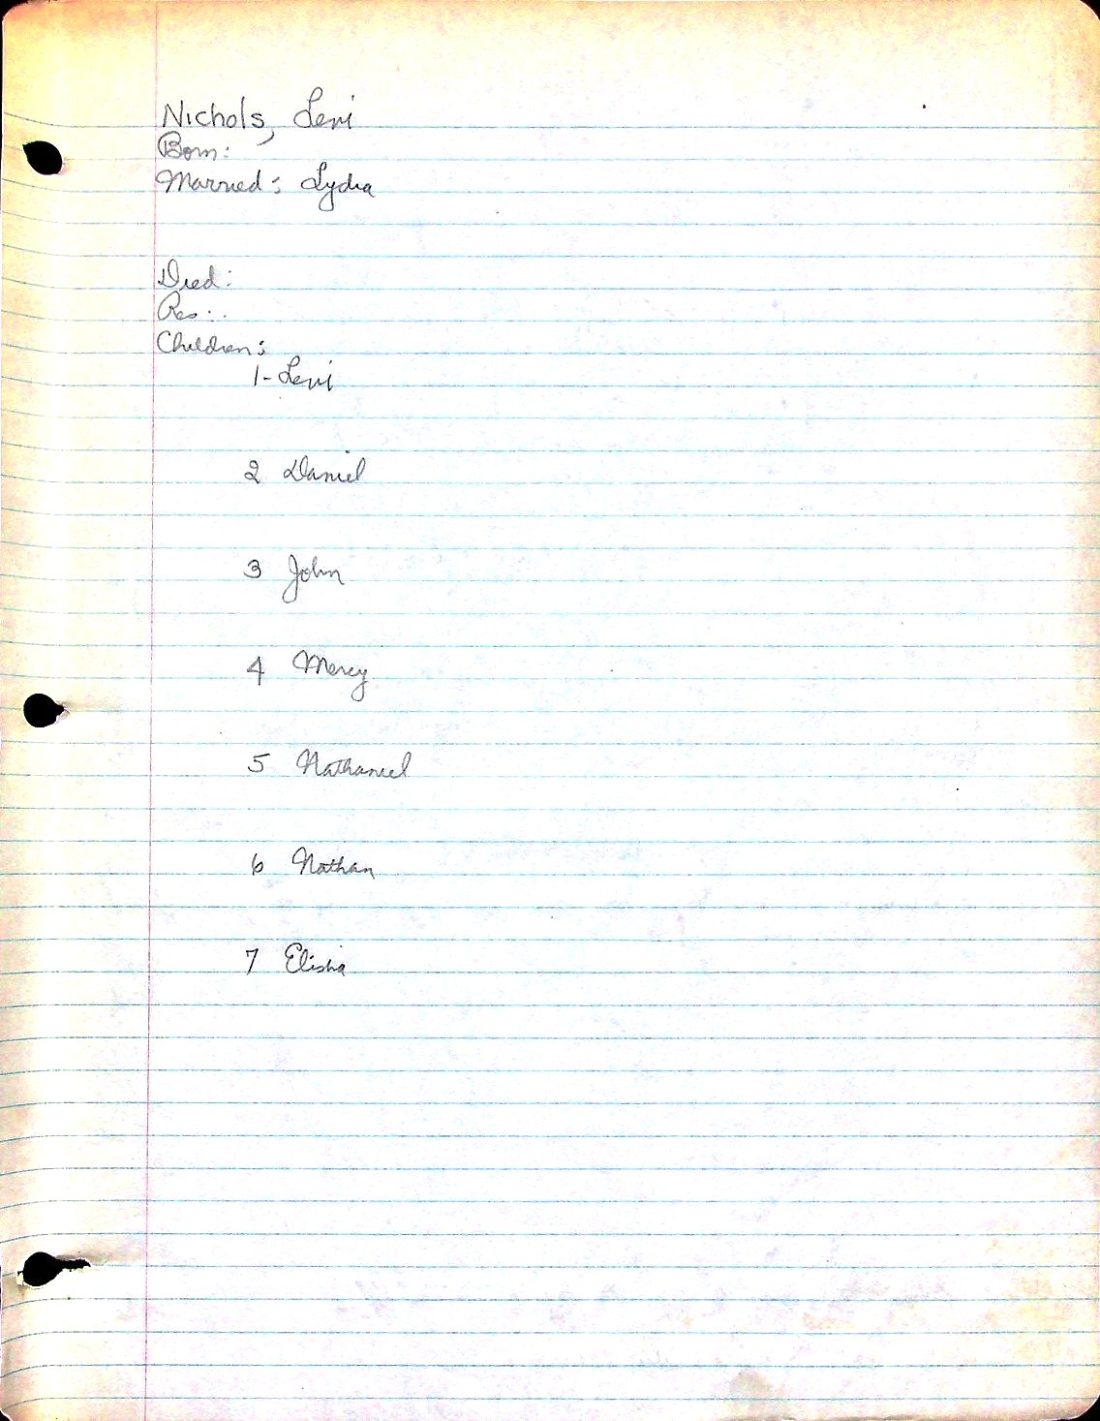 Nichols, Levi
Born:
Married: Lydia
Died:
Res:.
Children:
1- Levi
2 Daniel
3 John
4 Mercy
5 Nathaniel
6 Nathan
7 Elisha